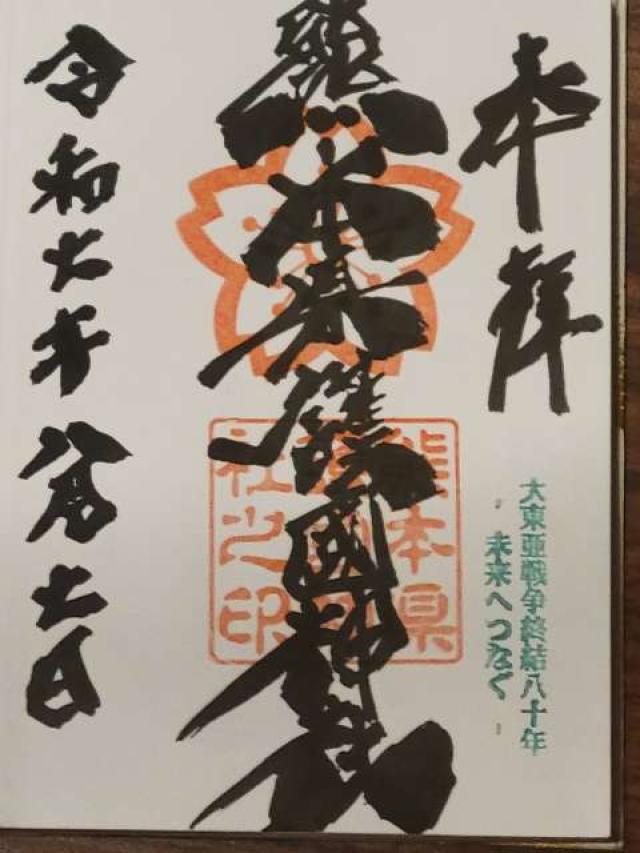 奉拝
大東亜戦争終結八十年
未来へつなぐ
熊本県護國神社
熊本県
護國神
社之印
令和七年八月七日